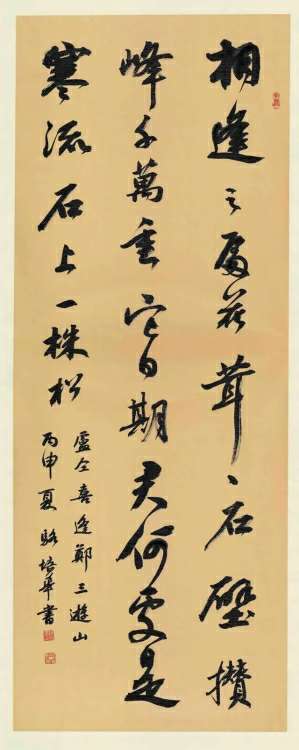 相逢之處花茸々石壁攢
峰千萬重它日期君何處是
寒流石上一株松
盧仝喜逢鄭三遊山
丙申夏駱培華書